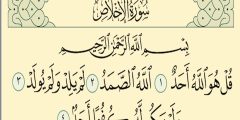 سُورَةُ الإِخْلَاصِ
بِسْمِ اللَّهِ الرَّحْمَٰنِ الرَّحِيمِ
قُلْ هُوَ اللَّهُ أَحَدٌ ١ اللَّهُ الصَّمَدُ ٢ لَمْ يَلِدْ وَلَمْ يُولَدْ ٣
وَلَمْ يَكُن لَّهُ كُفُوًا أَحَدٌ ٤